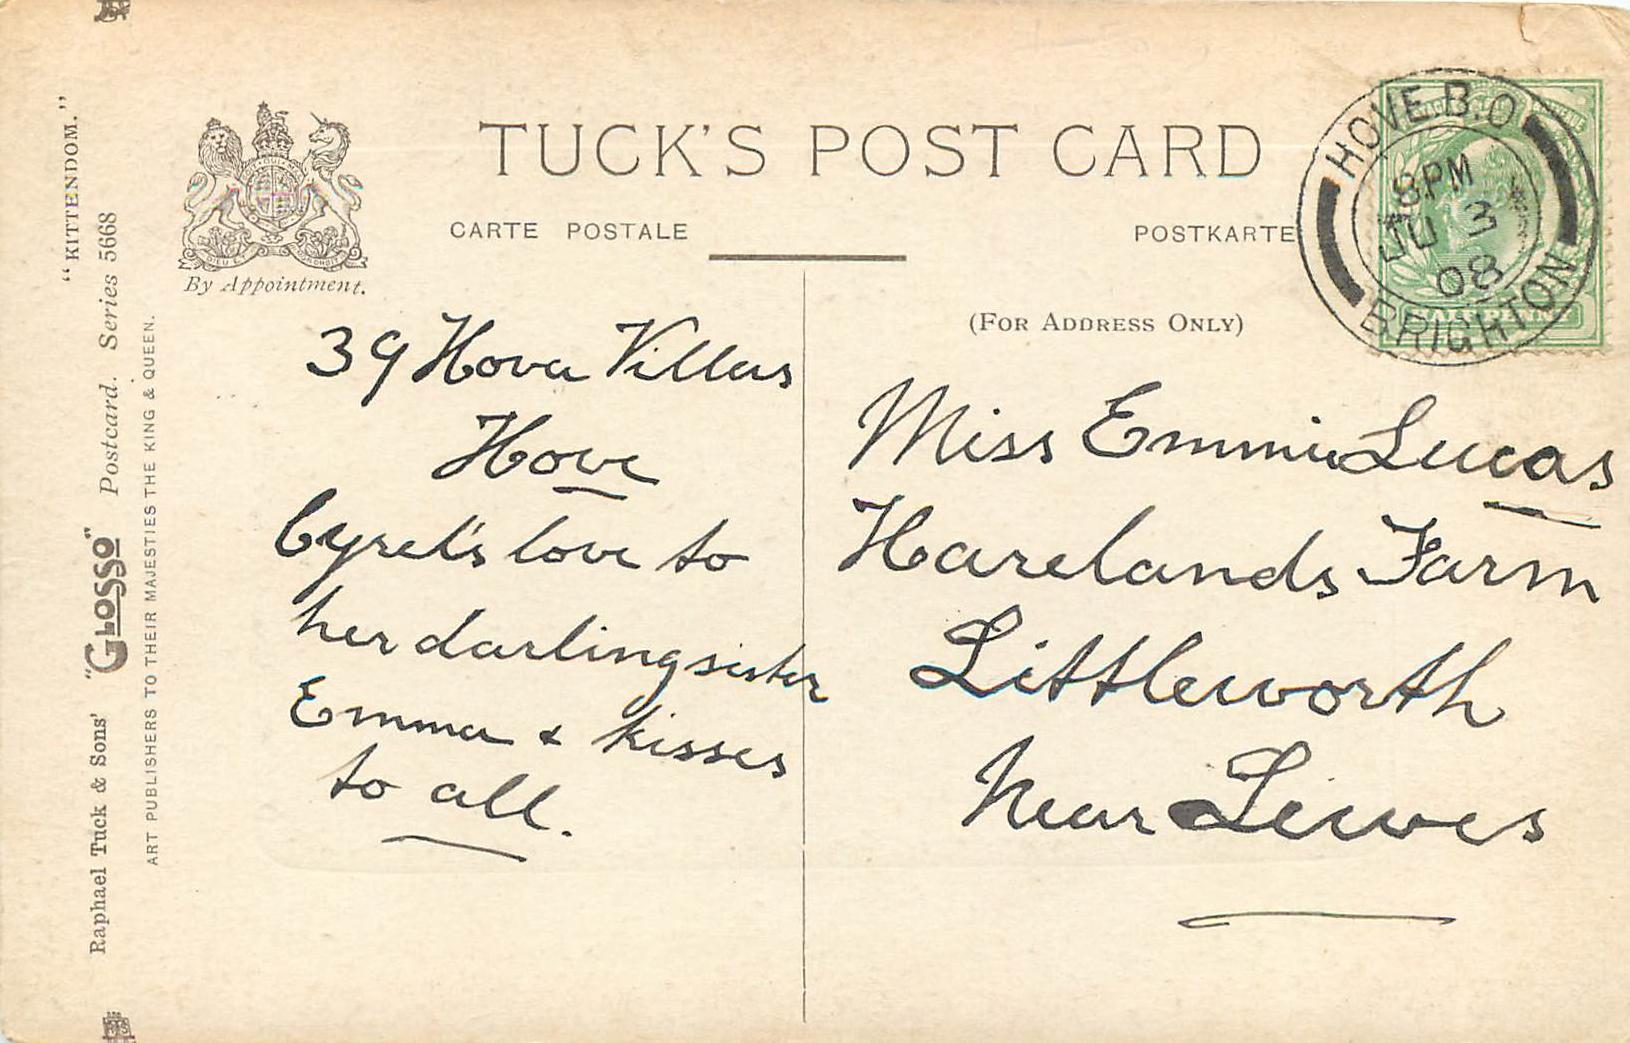 TUCK'S POST CARD
CARTE POSTALE
POSTKARTE
By Appointment.
(FOR ADDRESS ONLY)
HOVE. B.O
8 PM
JU 3
08
BRIGHTON
39 Hova Villas
Hove
Cyrel's love to
her darling sister
Emma & kisses
to all.
Miss Emmie Lucas
Harelands Farm
Littleworth
Near Lewes
"KITTENDOM."
Raphael Tuck & Sons' "GLOSSO" Postcard. Series 5668
ART PUBLISHERS TO THEIR MAJESTIES THE KING & QUEEN.